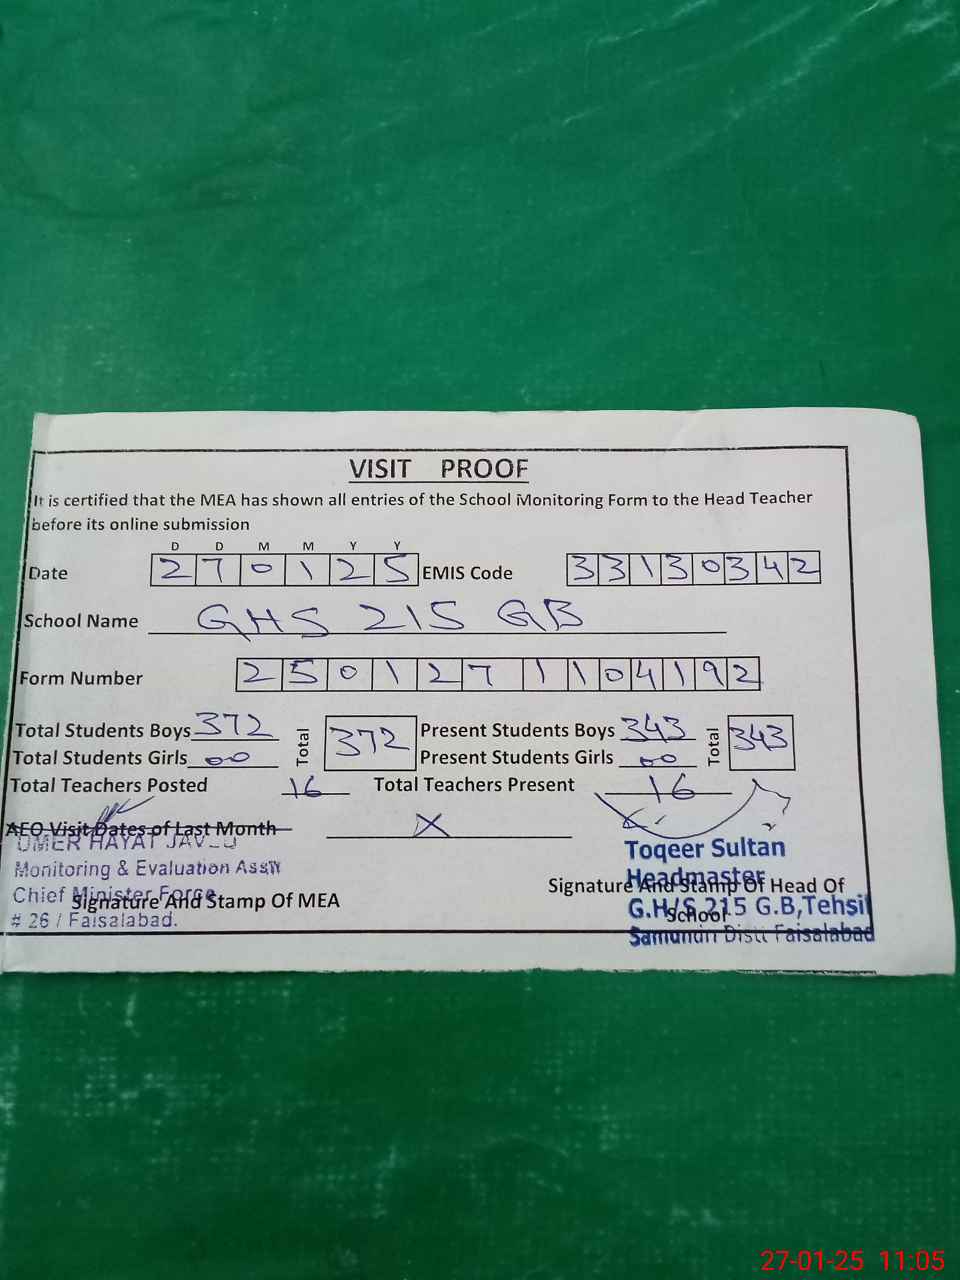 VISIT PROOF
It is certified that the MEA has shown all entries of the School Monitoring Form to the Head Teacher
before its online submission
D D M M Y Y
Date 270125 EMIS Code 33130342
School Name GHS 215 GB
Form Number 250127 1104192
Total Students Boys 372 Total 372 Present Students Boys 343 Total 343
Total Students Girls 00 Present Students Girls 00
Total Teachers Posted 16 Total Teachers Present 16
AEO Visit Dates of Last Month X
UMER HAYAT
Monitoring & Evaluation Asstt
Chief Minister Force
# 26 / Faisalabad.
Signature And Stamp Of MEA
Toqeer Sultan
Headmaster
G.H/S 215 G.B,Tehsil
Samundri Distt Faisalabad
Signature And Stamp Of Head Of
School
27-01-25 11:05